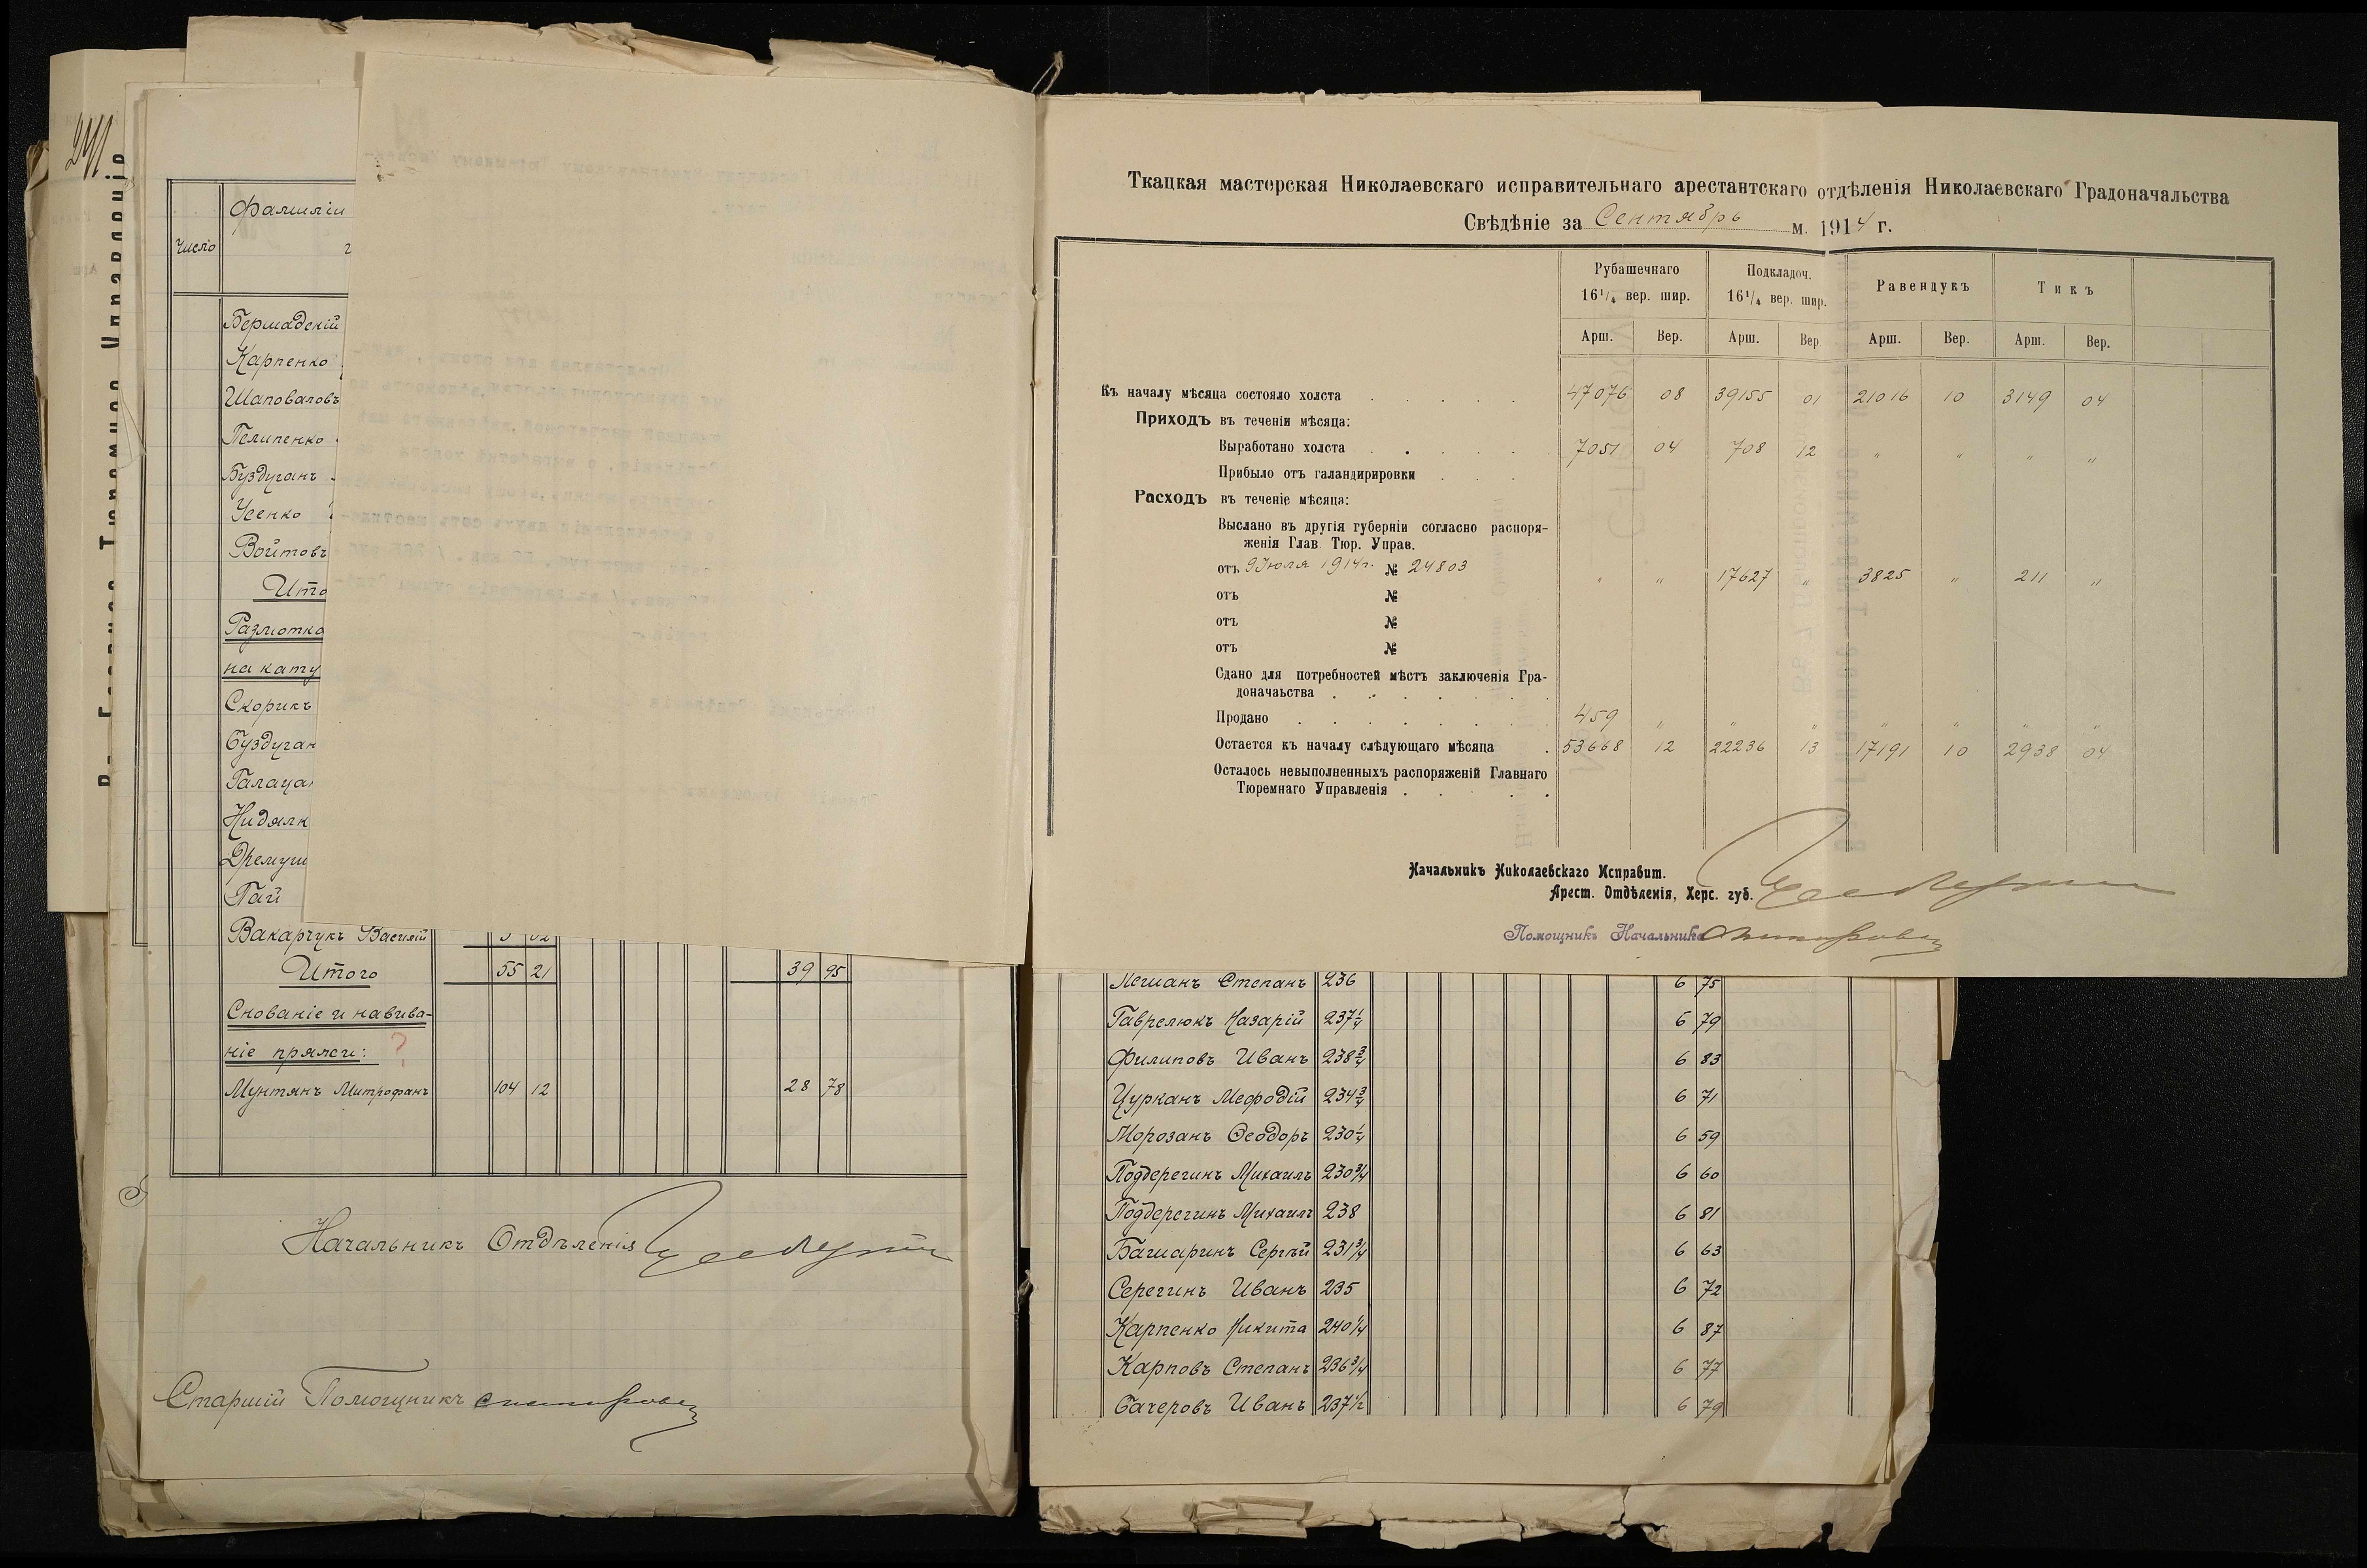 241
Число
Фамиліи
Бершадскій
Карпенко
Шаповаловъ
Пелипенко
Буздуганъ
Усенко
Войтовъ
Ито
Размотка
на кату
Скорикъ
Буздуган
Галаца
Нидялк
Дремуш
Гай
Вакарчукъ Василій
Итого 55 21 39 95
Снованіе и навива-
ніе пряжи: ?
Мунтянъ Митрофанъ 104 12 28 78
Начальникъ Отдѣленія
Старшій Помощникъ
Ткацкая мастерская Николаевскаго исправительнаго арестантскаго отдѣленія Николаевскаго Градоначальства
Свѣдѣніе за Сентябрь м. 1914 г.
Рубашечнаго 16¹/₄ вер. шир. Подкладоч. 16¹/₄ вер. шир. Равендукъ Тикъ
Арш. Вер. Арш. Вер. Арш. Вер. Арш. Вер.
Къ началу мѣсяца состояло холста 47076 08 39155 01 21016 10 3149 04
Приходъ въ теченіи мѣсяца:
Выработано холста 7051 04 708 12 " " " "
Прибыло отъ галандирировки
Расходъ въ теченіе мѣсяца:
Выслано въ другія губерніи согласно распоря-
женія Глав. Тюр. Управ.
отъ 9 Июля 1914 г. № 24803 " " 17627 " 3825 " 211 "
отъ №
отъ №
отъ №
Сдано для потребностей мѣстъ заключенія Гра-
доначаьства
Продано 459 " " " " " " "
Остается къ началу слѣдующаго мѣсяца 53668 12 22236 13 17191 10 2938 04
Осталось невыполненныхъ распоряженій Главнаго
Тюремнаго Управленія
Начальникъ Николаевскаго Исправит.
Арест. Отдѣленія, Херс. губ.
Помощникъ Начальника
Легианъ Степанъ 236 6 75
Гаврелюкъ Назарій 237¼ 6 79
Филиповъ Иванъ 238¾ 6 83
Цурканъ Мефодій 234¾ 6 71
Морозанъ Ѳеодоръ 230¼ 6 59
Поддерегинъ Михаилъ 230¾ 6 60
Поддерегинъ Михаилъ 238 6 81
Башаринъ Сергѣй 231¾ 6 63
Серегинъ Иванъ 235 6 72
Карпенко Никита 240¼ 6 87
Карповъ Степанъ 236¾ 6 77
Бачеровъ Иванъ 237½ 6 79